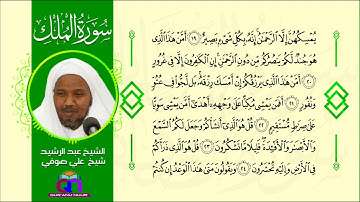 سُورَةُ الْمُلْكِ
يُمْسِكُهُنَّ إِلَّا الرَّحْمَٰنُ إِنَّهُ بِكُلِّ شَيْءٍ بَصِيرٌ ١٩ أَمَّنْ هَٰذَا الَّذِي
هُوَ جُندٌ لَّكُمْ يَنصُرُكُم مِّن دُونِ الرَّحْمَٰنِ إِنِ الْكَافِرُونَ إِلَّا فِي غُرُورٍ
٢٠ أَمَّنْ هَٰذَا الَّذِي يَرْزُقُكُمْ إِنْ أَمْسَكَ رِزْقَهُ بَل لَّجُّوا فِي عُتُوٍّ
وَنُفُورٍ ٢١ أَفَمَن يَمْشِي مُكِبًّا عَلَىٰ وَجْهِهِ أَهْدَىٰ أَمَّن يَمْشِي سَوِيًّا
عَلَىٰ صِرَاطٍ مُّسْتَقِيمٍ ٢٢ قُلْ هُوَ الَّذِي أَنشَأَكُمْ وَجَعَلَ لَكُمُ السَّمْعَ
وَالْأَبْصَارَ وَالْأَفْئِدَةَ قَلِيلًا مَّا تَشْكُرُونَ ٢٣ قُلْ هُوَ الَّذِي ذَرَأَكُمْ
فِي الْأَرْضِ وَإِلَيْهِ تُحْشَرُونَ ٢٤ وَيَقُولُونَ مَتَىٰ هَٰذَا الْوَعْدُ إِن كُنتُمْ
الشيخ عبد الرشيد
شيخ علي صوفي